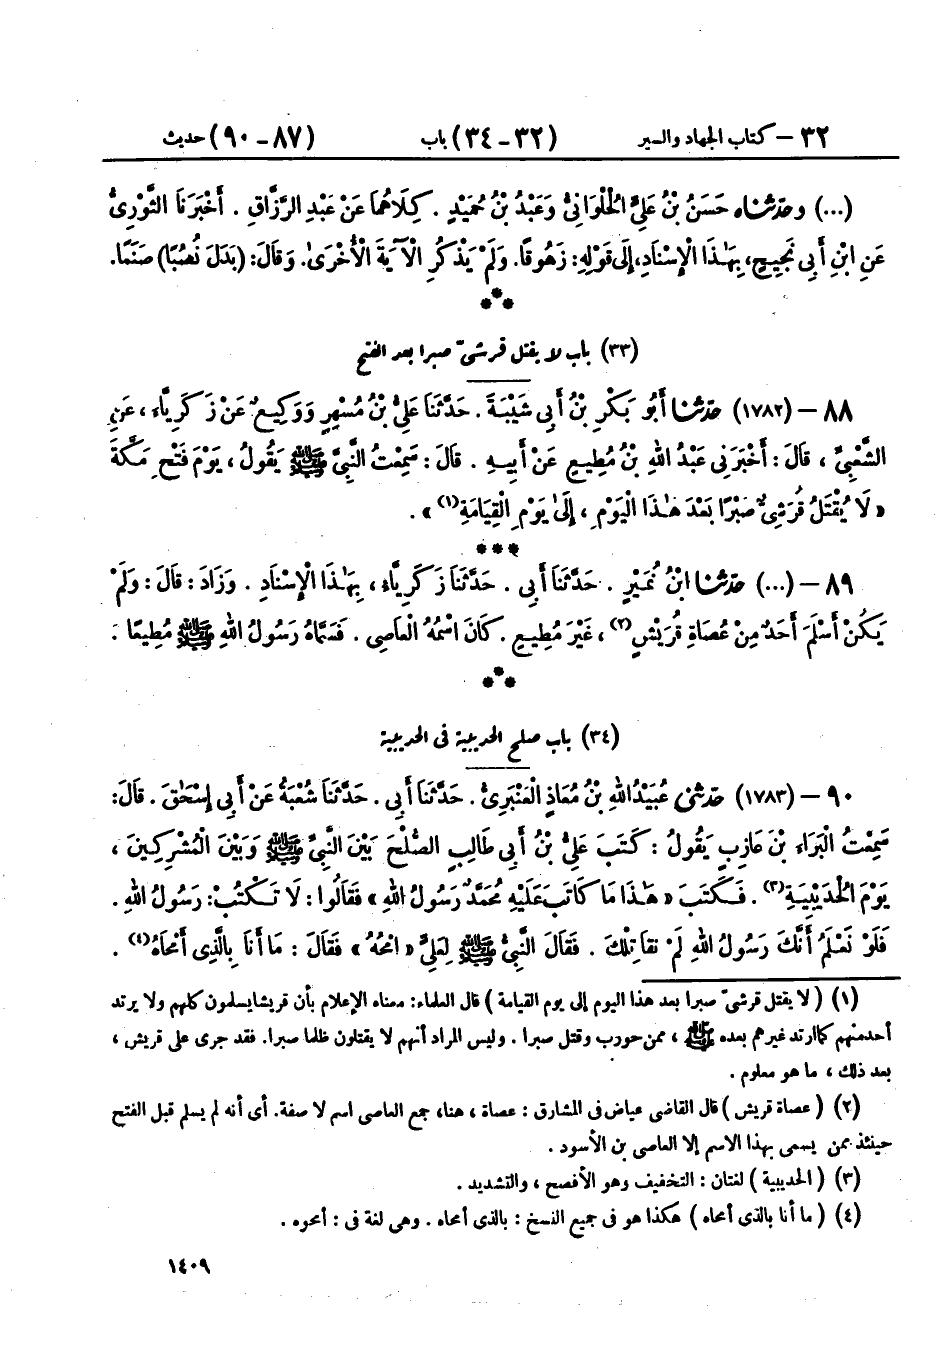 ٣٢ – كتاب الجهاد والسير (٣٢ - ٣٤) باب (٨٧ - ٩٠) حديث
(...) وحَدَّثَنَاه حَسَنُ بْنُ عَلِيٍّ الْحُلْوَانِيُّ وَعَبْدُ بْنُ حُمَيْدٍ . كِلَاهُمَا عَنْ عَبْدِ الرَّزَّاقِ . أَخْبَرَنَا الثَّوْرِيُّ
عَنِ ابْنِ أَبِي نَجِيحٍ، بِهَـٰذَا الْإِسْنَادِ، إِلَى قَوْلِهِ: زَهُوقًا. وَلَمْ يَذْكُرِ الْآيَةَ الْأُخْرَىٰ. وَقَالَ: (بَدَلَ نُصُبًا) صَنَمًا.
***
(٣٣) باب لا يقتل قرشىّ صبرا بعد الفتح
٨٨ – (١٧٨٢) حَدَّثَنَا أَبُو بَكْرِ بْنُ أَبِي شَيْبَةَ . حَدَّثَنَا عَلِيُّ بْنُ مُسْهِرٍ وَوَكِيعٌ عَنْ زَكَرِيَّاءَ ، عَنِ
الشَّعْبِيِّ ، قَالَ : أَخْبَرَنِي عَبْدُ اللهِ بْنُ مُطِيعٍ عَنْ أَبِيهِ . قَالَ : سَمِعْتُ النَّبِيَّ ﷺ يَقُولُ ، يَوْمَ فَتْحِ مَكَّةَ
« لَا يُقْتَلُ قُرَشِيٌّ صَبْرًا بَعْدَ هَـٰذَا الْيَوْمِ ، إِلَىٰ يَوْمِ الْقِيَامَةِ(١) » .
***
٨٩ – (...) حَدَّثَنَا ابْنُ نُمَيْرٍ . حَدَّثَنَا أَبِي . حَدَّثَنَا زَكَرِيَّاءُ ، بِهَـٰذَا الْإِسْنَادِ . وَزَادَ : قَالَ : وَلَمْ
يَكُنْ أَسْلَمَ أَحَدٌ مِنْ عُصَاةِ قُرَيْشٍ(٢) ، غَيْرَ مُطِيعٍ . كَانَ اسْمُهُ الْعَاصِى . فَسَمَّاهُ رَسُولُ اللهِ ﷺ مُطِيعًا .
***
(٣٤) باب صلح الحديبية فى الحديبية
٩٠ – (١٧٨٣) حَدَّثَنِي عُبَيْدُ اللهِ بْنُ مُعَاذٍ الْعَنْبَرِيُّ . حَدَّثَنَا أَبِي . حَدَّثَنَا شُعْبَةُ عَنْ أَبِي إِسْحَـٰقَ . قَالَ:
سَمِعْتُ الْبَرَاءَ بْنَ عَازِبٍ يَقُولُ : كَتَبَ عَلِيُّ بْنُ أَبِي طَالِبٍ الصُّلْحَ بَيْنَ النَّبِيِّ ﷺ وَبَيْنَ الْمُشْرِكِينَ ،
يَوْمَ الْحُدَيْبِيَةِ(٣) . فَكَتَبَ « هَـٰذَا مَا كَاتَبَ عَلَيْهِ مُحَمَّدٌ رَسُولُ اللهِ » فَقَالُوا : لَا تَكْتُبْ: رَسُولُ اللهِ .
فَلَوْ نَعْلَمُ أَنَّكَ رَسُولُ اللهِ لَمْ نُقَاتِلْكَ . فَقَالَ النَّبِيُّ ﷺ لِعَلِيٍّ « امْحُهُ » فَقَالَ : مَا أَنَا بِالَّذِي أَمْحَاهُ(٤) .
(١) ( لا يقتل قرشىّ صبرا بعد هذا اليوم إلى يوم القيامة ) قال العلماء: معناه الإعلام بأن قريشا يسلمون كلهم ولا يرتد
أحد منهم كما ارتد غيرهم بعده ﷺ ، ممن حورب وقتل صبرا . وليس المراد أنهم لا يقتلون ظلما صبرا. فقد جرى على قريش ،
بعد ذلك ، ما هو معلوم .
(٢) ( عصاة قريش ) قال القاضى عياض فى المشارق : عصاة ، هنا، جمع العاصى اسم لا صفة. أى أنه لم يسلم قبل الفتح
حينئذ ممن يسمى بهذا الاسم إلا العاصى بن الأسود .
(٣) ( الحديبية ) لغتان : التخفيف وهو الأفصح ، والتشديد .
(٤) ( ما أنا بالذى أمحاه ) هكذا هو فى جميع النسخ : بالذى أمحاه . وهى لغة فى : أمحوه .
١٤٠٩